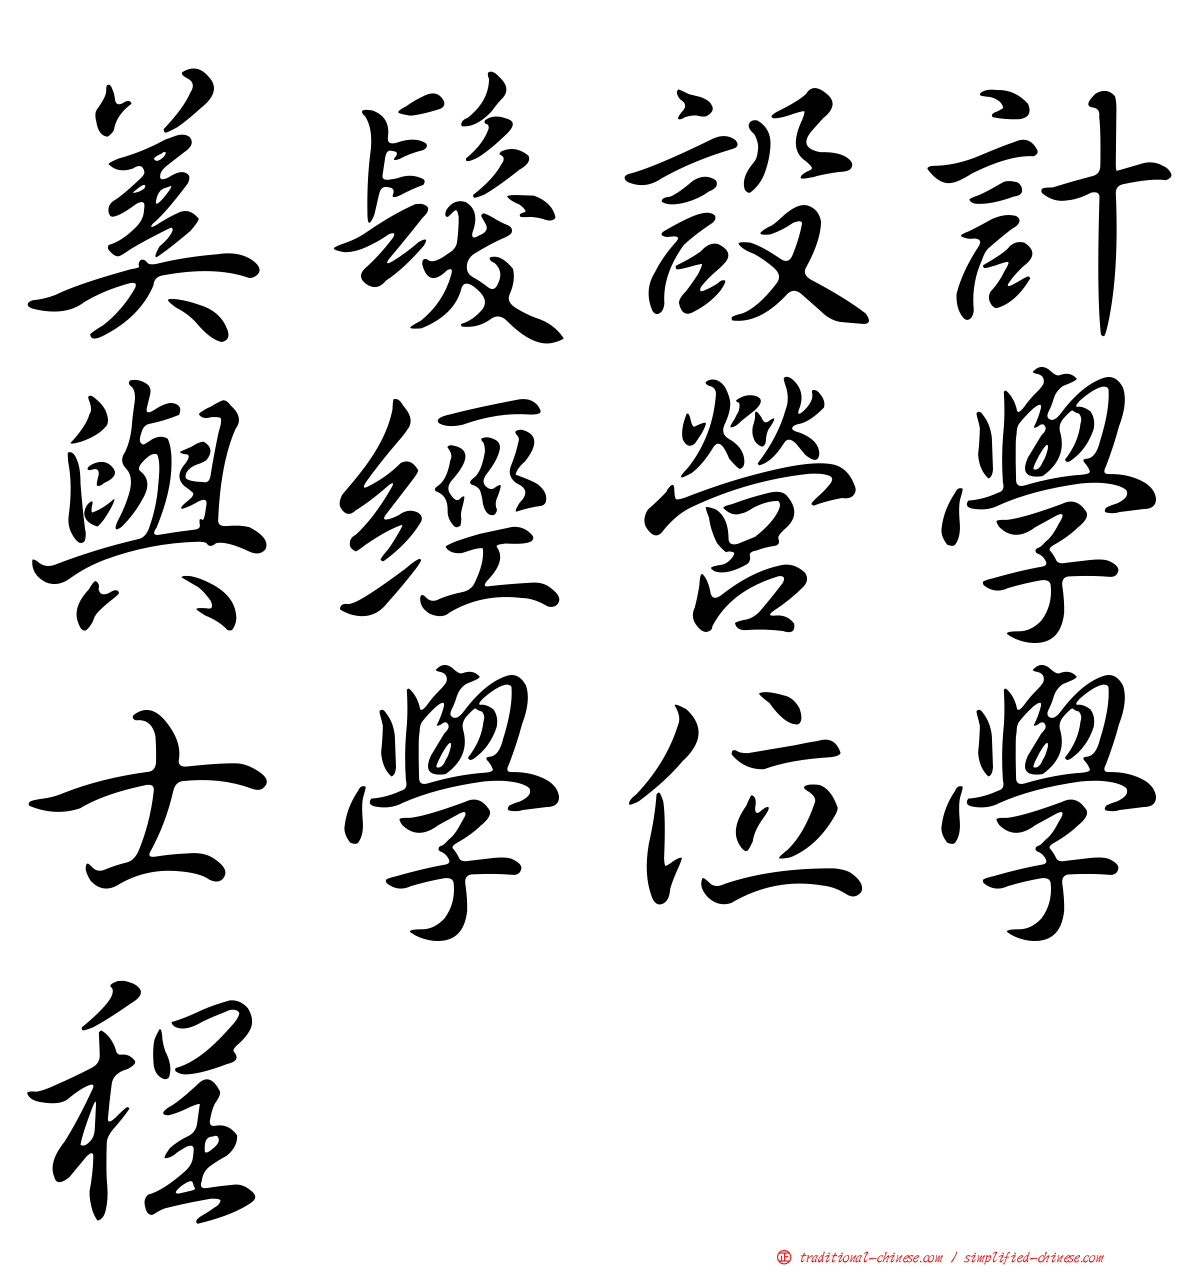 美髮設計
與經營學
士學位學
程
正 traditional-chinese.com / simplified-chinese.com